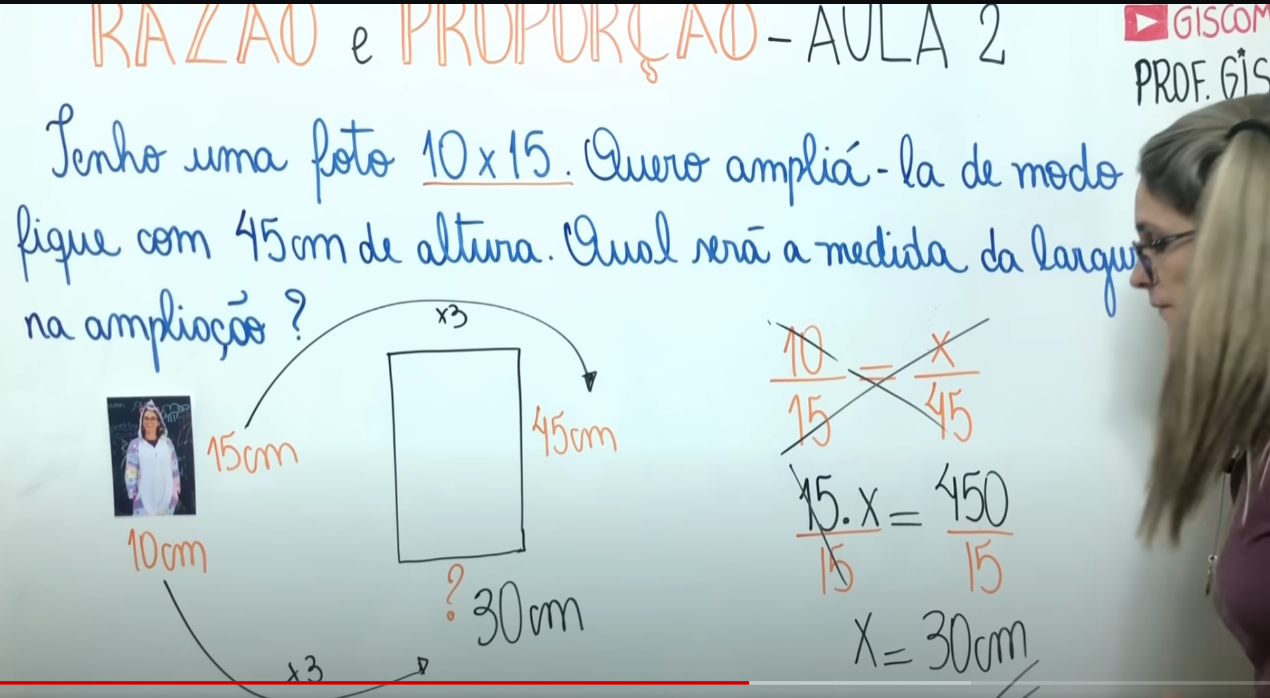 RAZÃO e PROPORÇÃO - AULA 2
GISCOM
PROF. GIS
Tenho uma foto 10x15. Quero ampliá-la de modo
fique com 45cm de altura. Qual será a medida da largu
na ampliação ?
x3
15cm
10cm
45cm
? 30cm
x3
10/15 = x/45
15.x/15 = 450/15
x = 30cm